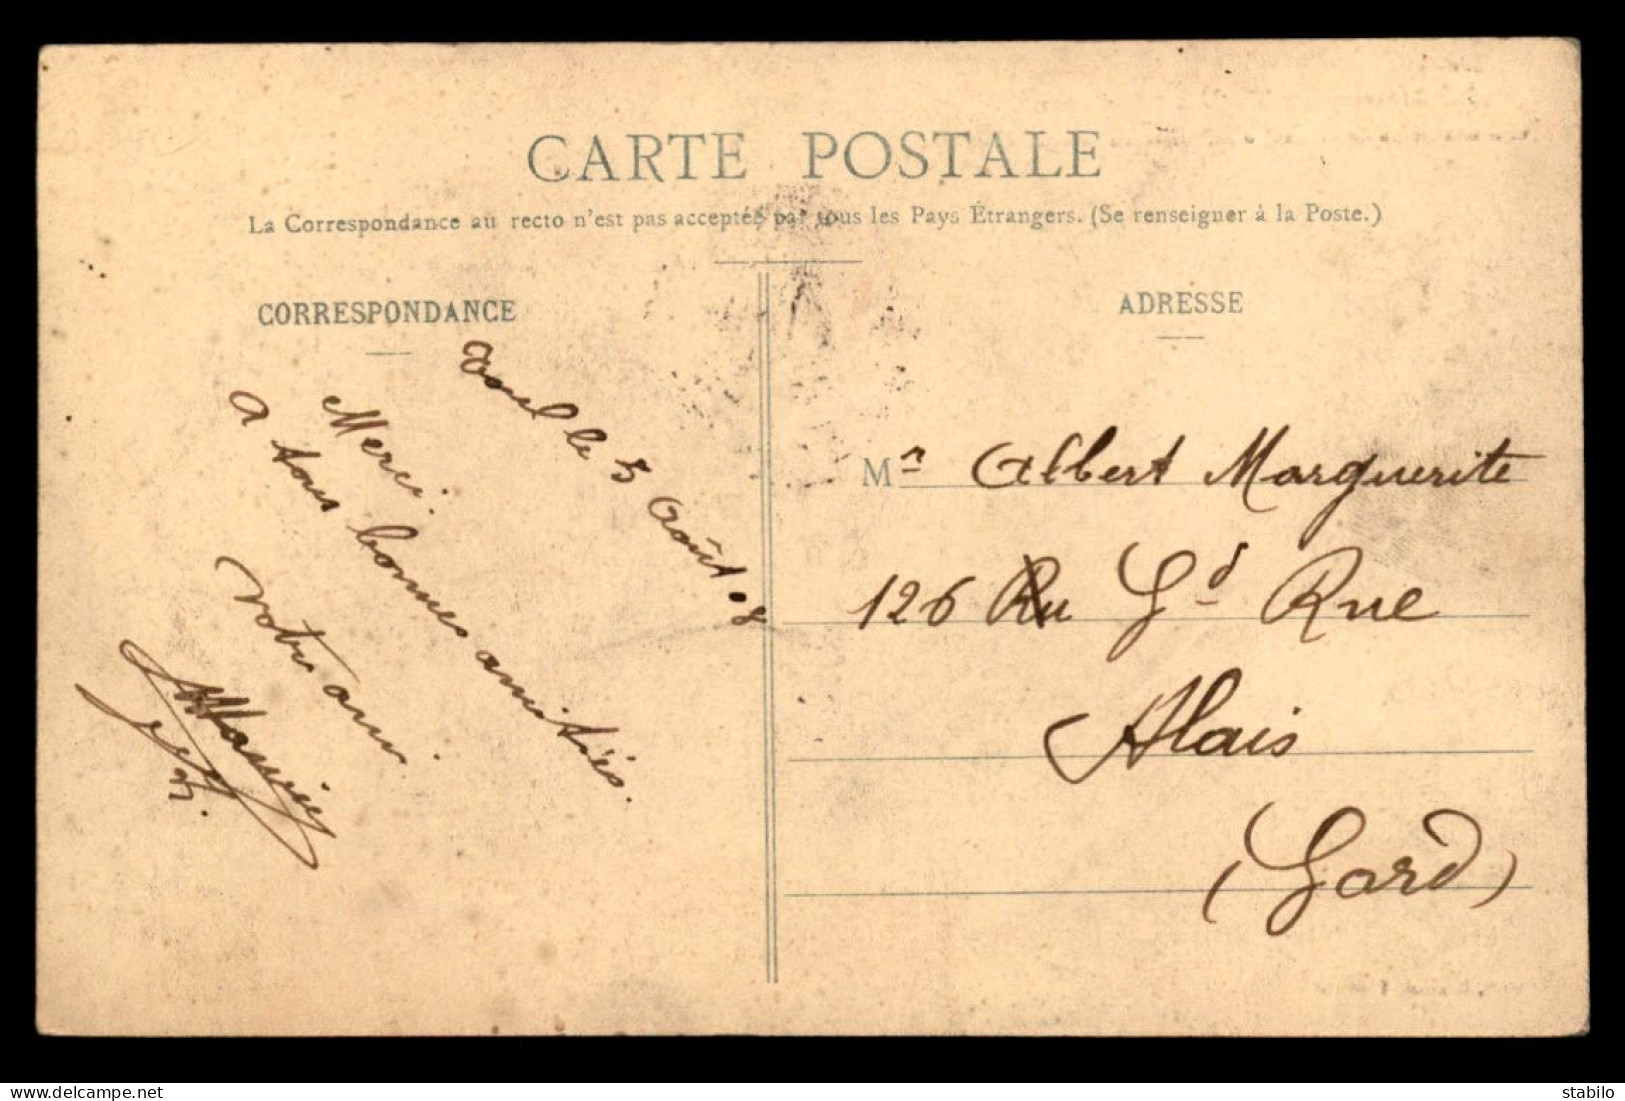 CARTE POSTALE
La Correspondance au recto n'est pas acceptée par tous les Pays Étrangers. (Se renseigner à la Poste.)
CORRESPONDANCE
Toul le 5 Août 08
Merci.
A tous bonnes amitiés.
Votre ami.
ADRESSE
Mr Albert Marguerite
126 Ru Gd Rue
Alais
(Gard)
stabilo